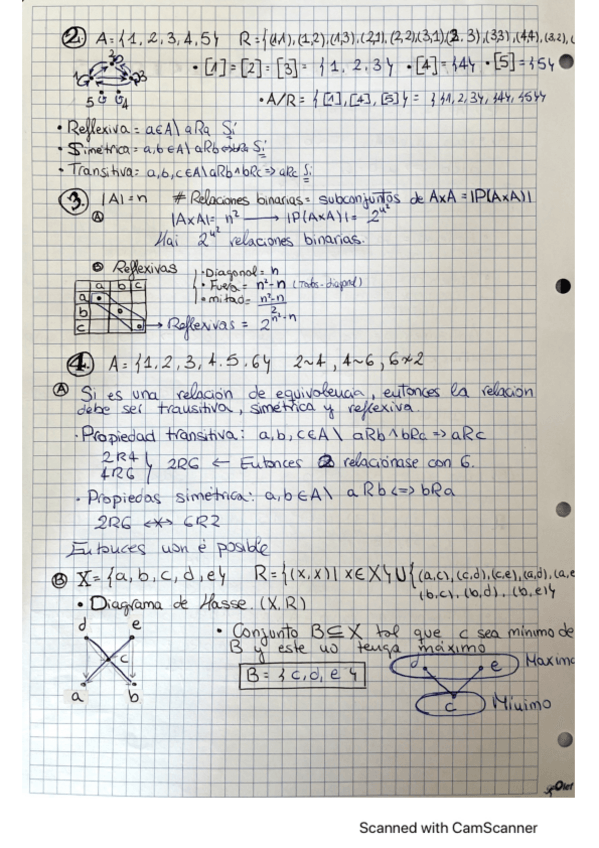 2. A={1,2,3,4,5} R={(1,1),(1,2),(1,3),(2,1),(2,2),(3,1),(2,3),(3,3),(4,4),(3,2),(
• [1]=[2]=[3]= {1,2,3} • [4]={4} • [5]={5}
1 2 3 5 4
• A/R = {[1],[4],[5]} = {{1,2,3},{4},{5}}
• Reflexiva = a∈A\ aRa Sí
• Simétrica = a,b∈A\ aRb⇔bRa Sí
• Transitiva: a,b,c∈A\ aRb∧bRc => aRc Si
3. |A|=n # Relaciones binarias = subconjuntos de AxA = |P(AxA)|
A |AxA|= n² → |P(AxA)|= 2^n²
Hai 2^n² relaciones binarias.
B Reflexivas
• Diagonal = n
• Fuera = n²-n (Tabs-diagonal)
• mitad = (n²-n)/2
a b c
a
b
c
→ Reflexivas = 2^n²-n
4. A={1,2,3,4,5,6} 2~4, 4~6, 6≁2
A Si es una relación de equivalencia, entonces la relación
debe ser transitiva, simétrica y reflexiva.
· Propiedad transitiva: a,b,c∈A\ aRb∧bRc => aRc
2R4
4R6 } 2R6 ← Entonces 2 relaciónase con 6.
• Propiedas simétrica: a,b∈A\ aRb<=>bRa
2R6 6R2
Entonces non é posible
B X={a,b,c,d,e} R={(x,x)| x∈X}∪{(a,c),(c,d),(c,e),(a,d),(a,e
(b,c),(b,d),(b,e)}
• Diagrama de Hasse. (X,R)
d e
c
a b
• Conjunto B⊆X tal que c sea mínimo de
B y este no tenga máximo
B = {c,d,e}
d e Maxima
c Mínimo
Scanned with CamScanner